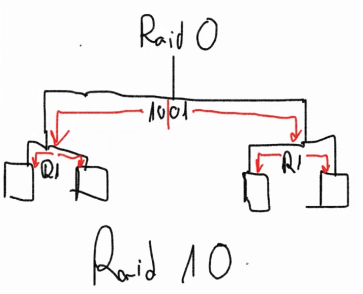 Raid 0
1001
R1 R1
Raid 10